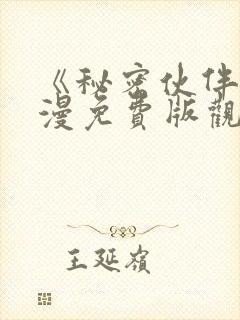 《秘密伙伴
漫免費版觀
王延嶺